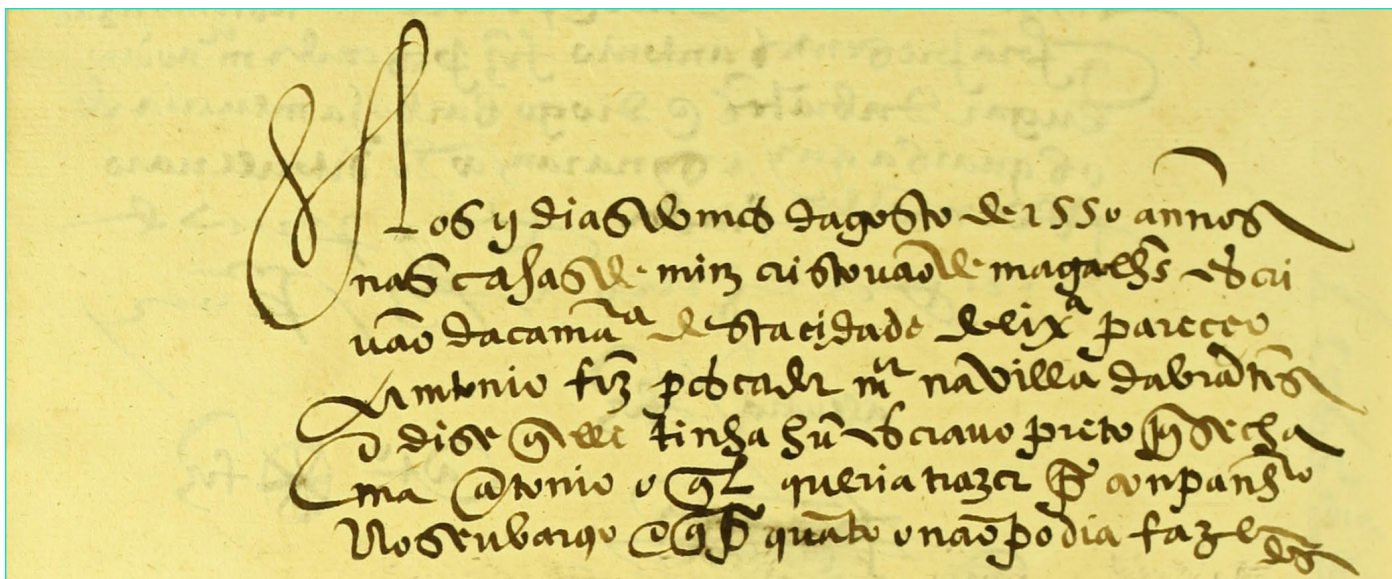 Aos ij dias do mes dagosto de 1550 annos
nas casas de mim cristovão de magalhẽs escri
vão da camãra desta cidade de lixa pareceo
Antonio frz pescador mor na villa dabrãtes
e dise q elle tinha hũ escravo preto q se cha
ma Antonio o ql queria trazer por companhro
No seu barquo e q por quãto o não podia fazer